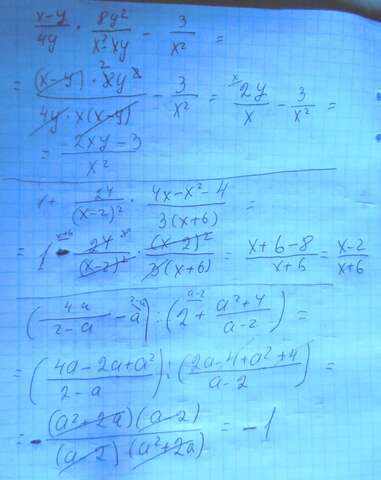 x-y/4y · 8y²/x²-xy - 3/x² =
= (x-y)·8y²/4y·x(x-y) - 3/x² = 2y/x - 3/x² =
= 2xy-3/x²
1+ 24/(x-2)² · 4x-x²-4/3(x+6) =
= 1 - 24/(x-2)² · (x-2)²/3(x+6) = x+6-8/x+6 = x-2/x+6
(4a/2-a - a) : (2 + a²+4/a-2) =
= (4a-2a+a²/2-a) : (2a-4+a²+4/a-2) =
= - (a²+2a)(a-2)/(a-2)(a²+2a) = -1